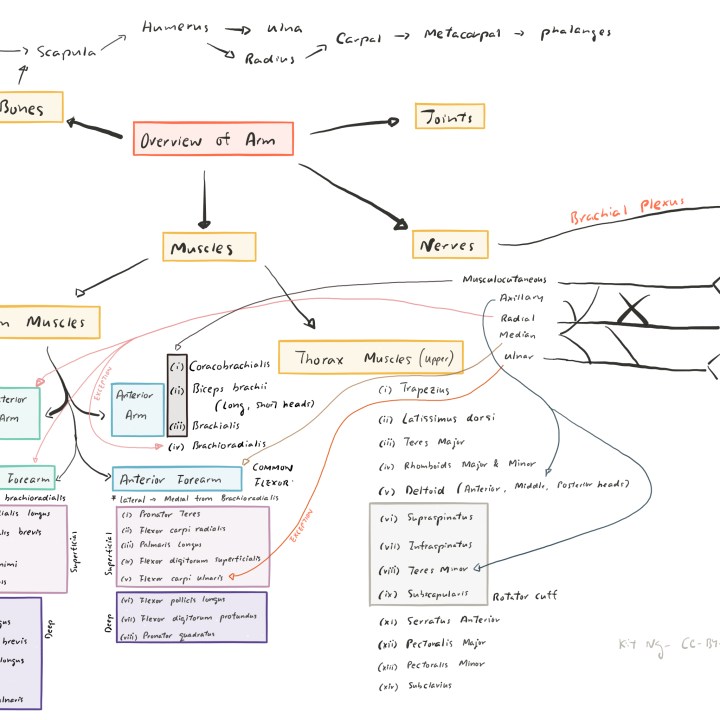 Humerus → ulna
→ Scapula
Radius
Carpal → Metacarpal → phalanges
Bones
Overview of Arm
Joints
Brachial Plexus
Muscles
Nerves
Musculocutaneous
Axillary
Radial
Median
ulnar
Muscles
Thorax Muscles (upper)
EXCEPTION
(i) Coracobrachialis
(ii) Biceps brachii
(long, short heads)
(iii) Brachialis
(iv) Brachioradialis
Anterior
Arm
terior
Arm
(i) Trapezius
(ii) Latissimus dorsi
(iii) Teres Major
(iv) Rhomboids Major & Minor
(v) Deltoid (Anterior, Middle, Posterior heads)
(vi) Supraspinatus
(vii) Infraspinatus
(viii) Teres Minor
(ix) Subscapularis
Rotator cuff
(xi) Serratus Anterior
(xii) Pectoralis Major
(xiii) Pectoralis Minor
(xiv) Subclavius
Forearm
brachioradialis
ialis longus
lis brevis
nimi
is
Superficial
gus
brevis
longus
ulnaris
Deep
Anterior Forearm
COMMON
FLEXOR
* lateral → Medial from Brachioradialis
Superficial
(i) Pronator Teres
(ii) Flexor carpi radialis
(iii) Palmaris longus
(iv) Flexor digitorum superficialis
(v) Flexor carpi ulnaris
EXCEPTION
Deep
(vi) Flexor pollicis longus
(vii) Flexor digitorum profundus
(viii) Pronator quadratus
Kit Ng - CC-BY-